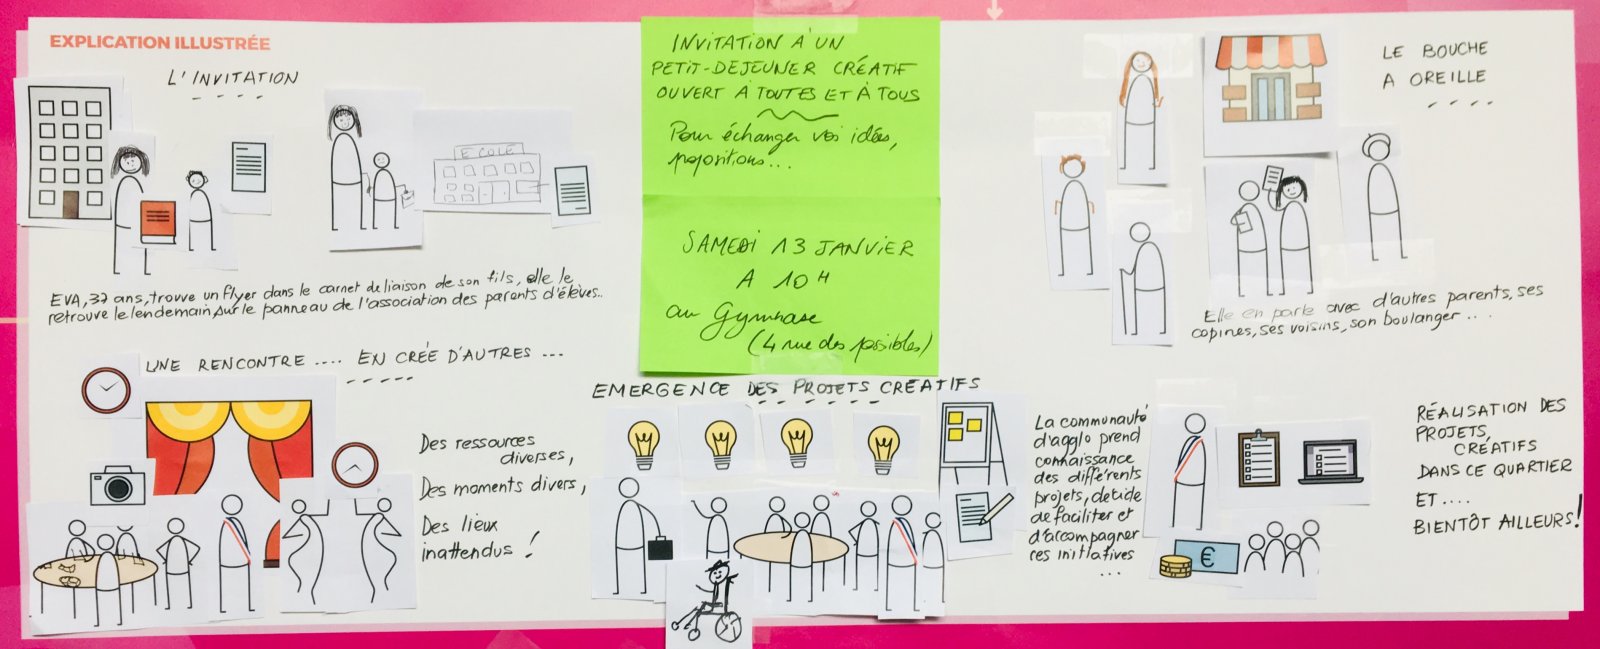 EXPLICATION ILLUSTRÉE
L'INVITATION
ECOLE
EVA, 37 ans, trouve un flyer dans le carnet de liaison de son fils, elle le
retrouve le lendemain sur le panneau de l'association des parents d'élèves..
INVITATION A UN
PETIT-DEJEUNER CRÉATIF
OUVERT A TOUTES ET À TOUS
Pour échanger vos idées,
propositions...
SAMEDI 13 JANVIER
A 10H
au Gymnase
(4 rue des possibles)
LE BOUCHE
A OREILLE
Elle en parle avec d'autres parents, ses
copines, ses voisins, son boulanger...
UNE RENCONTRE .... EN CRÉE D'AUTRES ...
Des ressources
diverses,
Des moments divers,
Des lieux
inattendus !
EMERGENCE DES PROJETS CRÉATIFS
La communauté
d'agglo prend
connaissance
des différents
projets, décide
de faciliter et
d'accompagner
ces initiatives
...
€
RÉALISATION DES
PROJETS,
CRÉATIFS
DANS CE QUARTIER
ET ....
BIENTÔT AILLEURS!